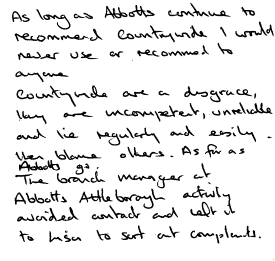 As long as Abbotts continue to
recommend Countrywide I would
never use or recommend to
anyone
Countrywide are a disgrace,
they are incompetent, unreliable
and lie regularly and easily.
then blame others. As far as
Abbotts go.
The branch manager at
Abbotts Attleborough actively
avoided contact and left it
to Lisa to sort out complaints.